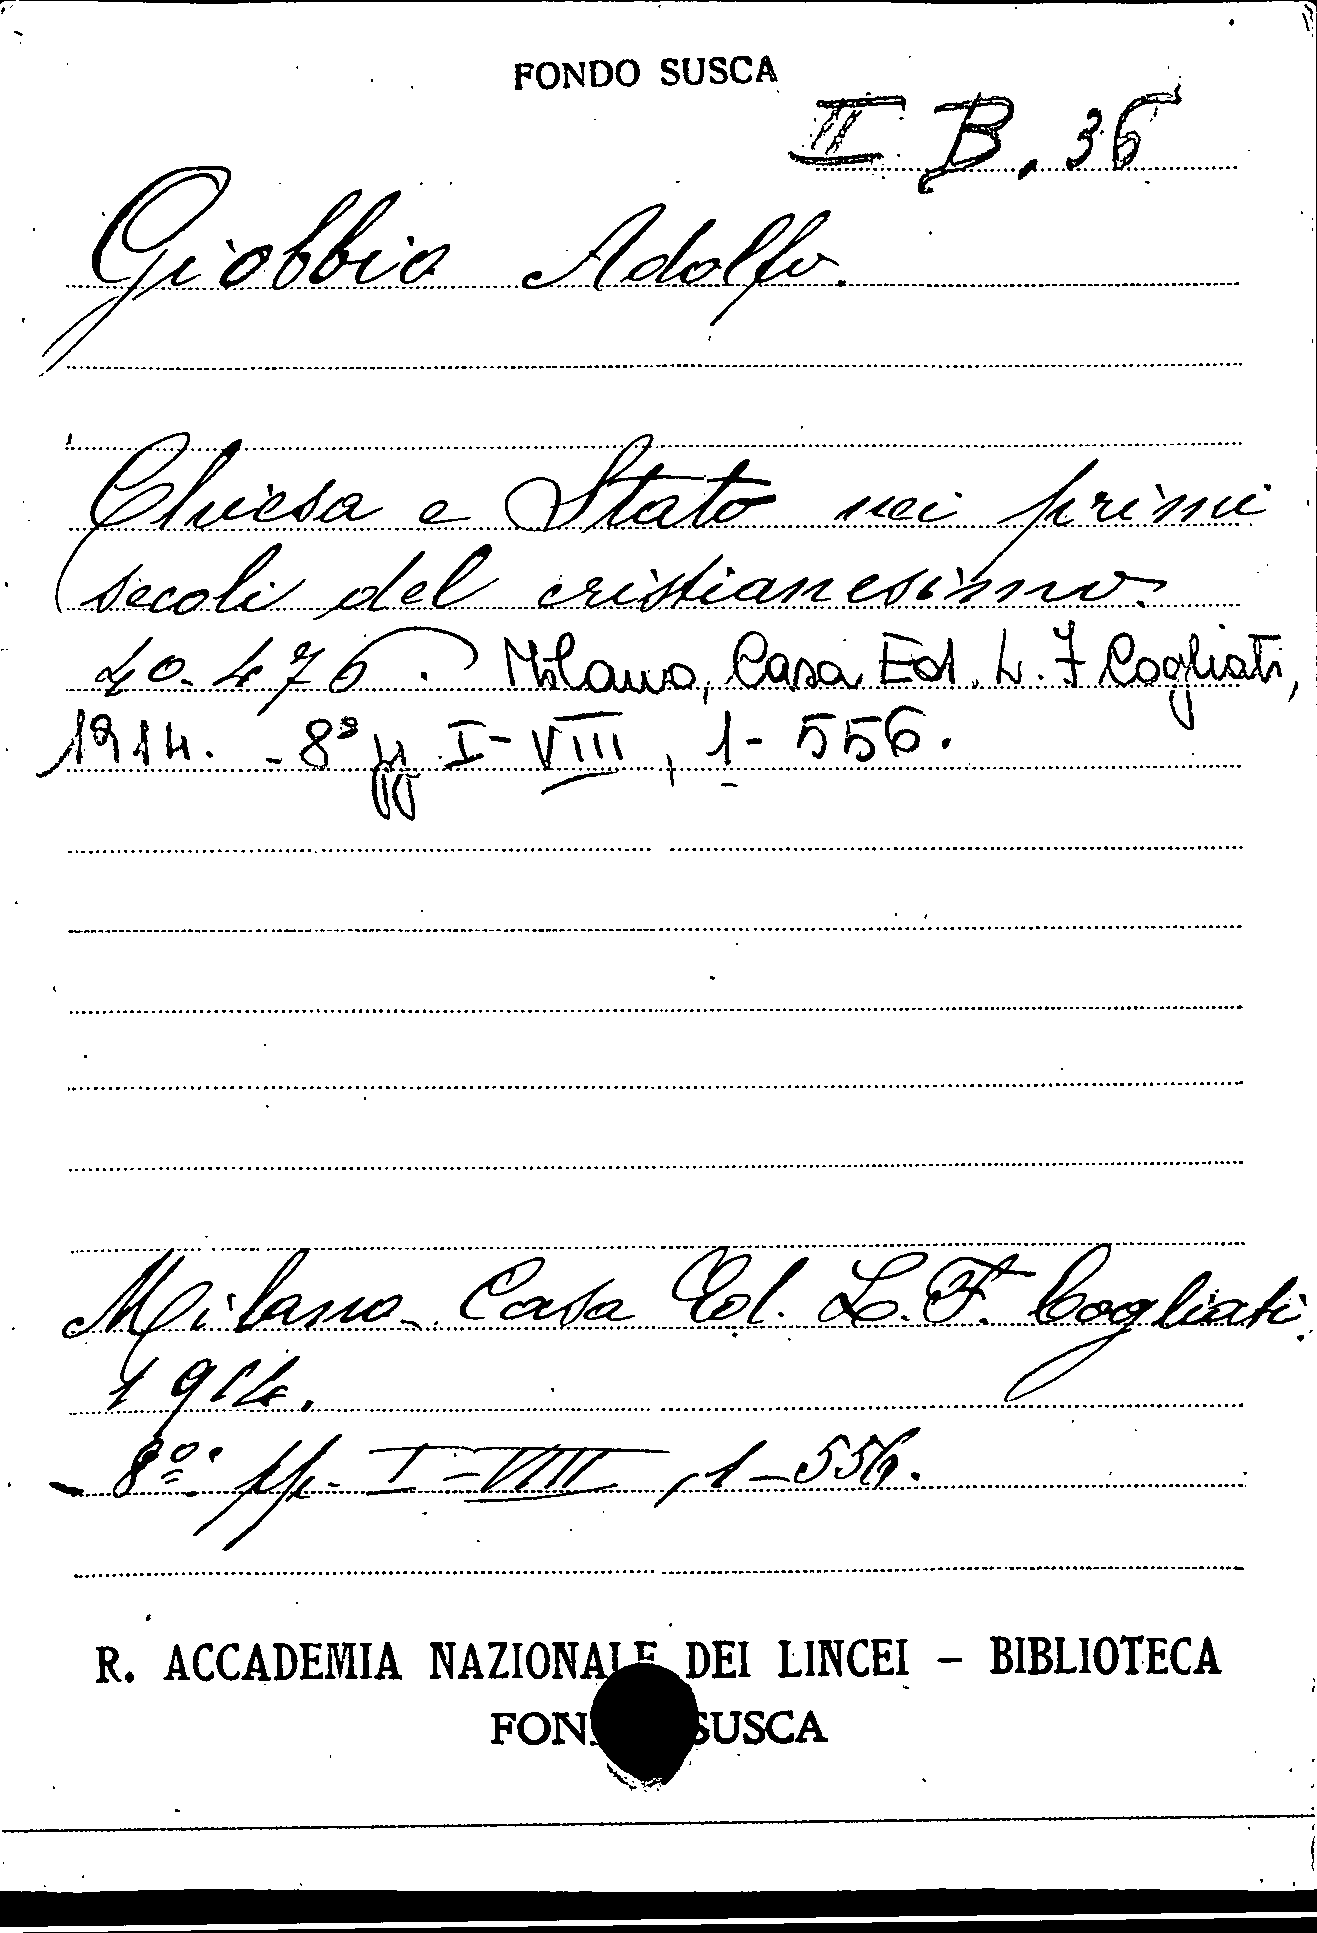 FONDO SUSCA
II. B. 36
Giobbio Adolfo.
Chiesa e Stato nei primi
secoli del cristianesimo.
40-476. Milano, Casa Ed. L. F Cogliati,
1914. - 8° pp I-VIII, 1-556.
Milano - Casa Ed. L. F. Cogliati.
1914.
- 8°. pp. I-VIII, 1-556.
R. ACCADEMIA NAZIONALE DEI LINCEI – BIBLIOTECA
FON SUSCA